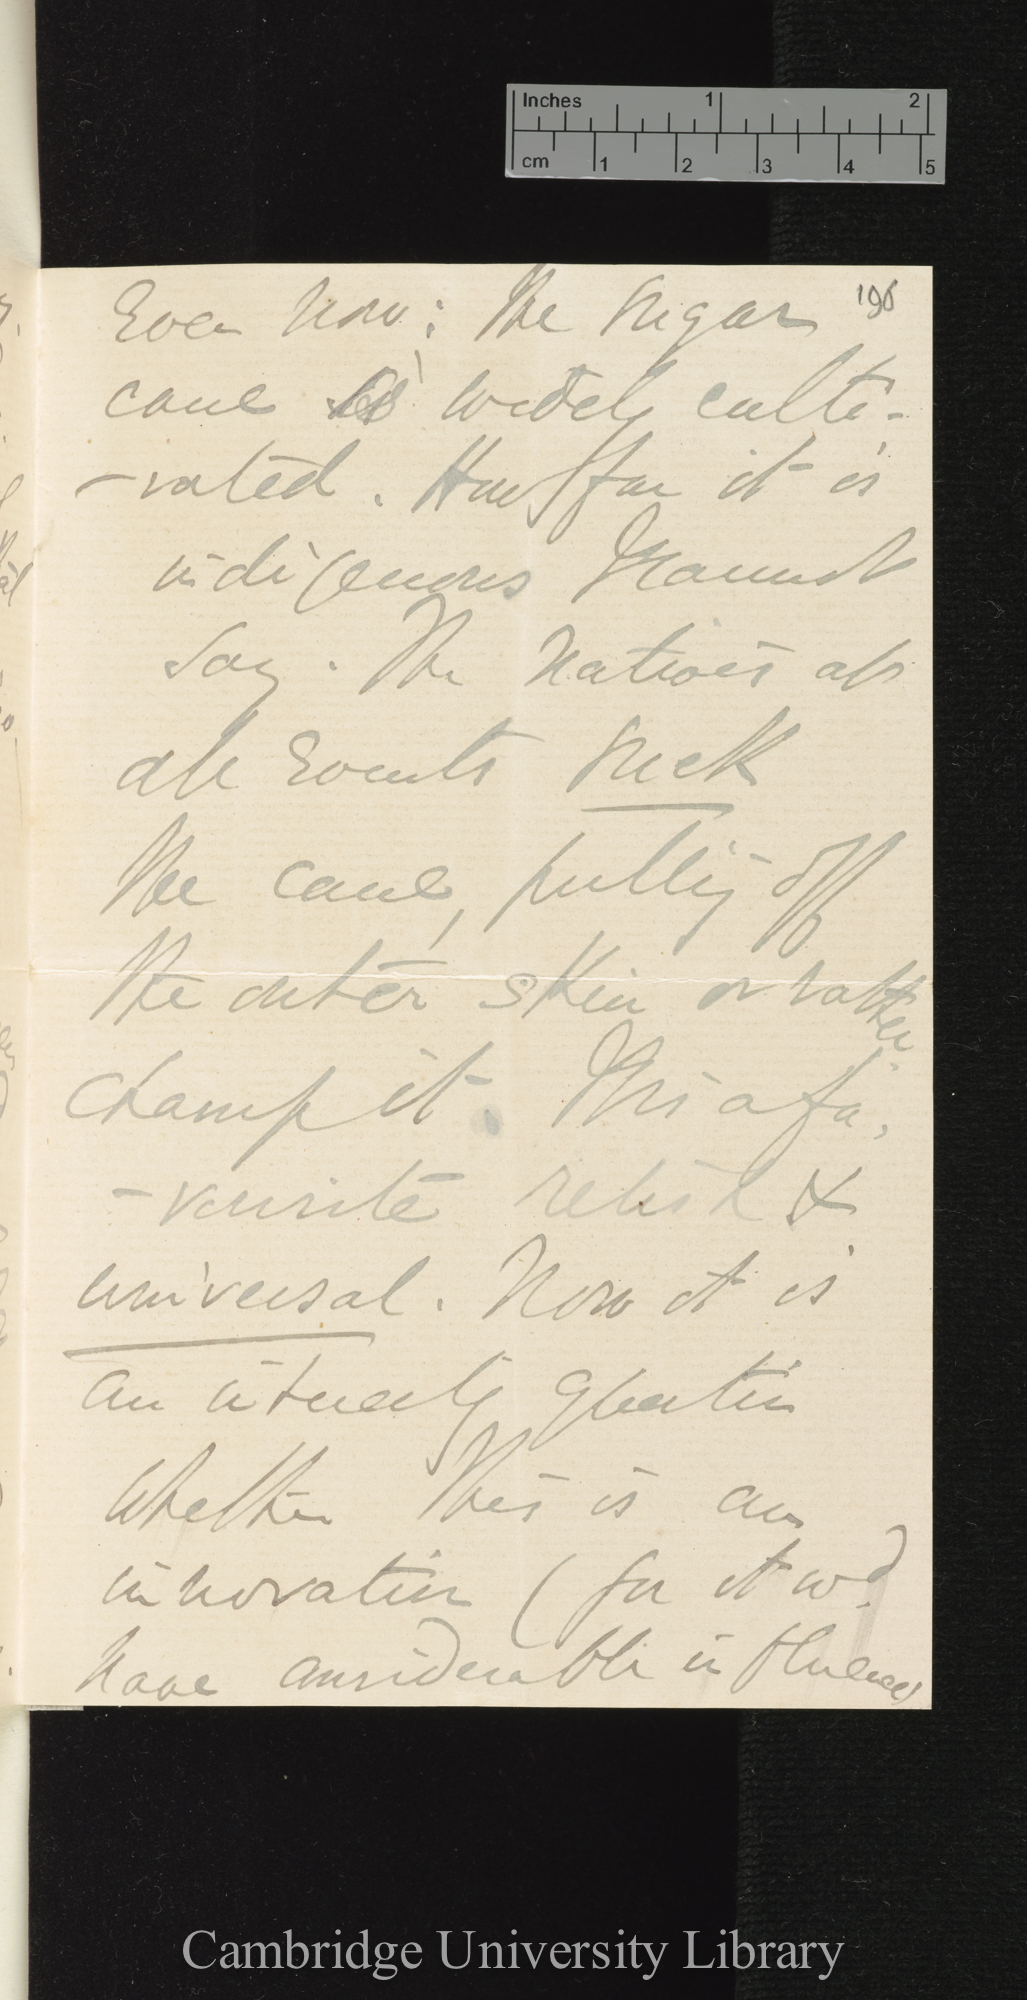 Inches 1 2
cm 1 2 3 4 5
196
Even now; the sugar
cane is widely culti-
-vated. How far it is
indigenous I cannot
say. The natives at
all events suck
the cane, pulling off
the outer skin or rather
champ it. This is a fa-
-vourite relish &
universal. Now it is
an interesting question
whether this is an
innovation (for it wd.
have considerable influence)
Cambridge University Library